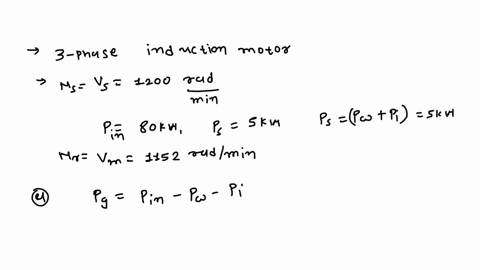 → 3-phase induction motor
→ Ns = Vs = 1200 rad/min
Pin = 80kW, Ps = 5kW Ps = (Pω + Pi) = 5kW
Nr = Vm = 1152 rad/min
(a) Pg = Pin - Pω - Pi